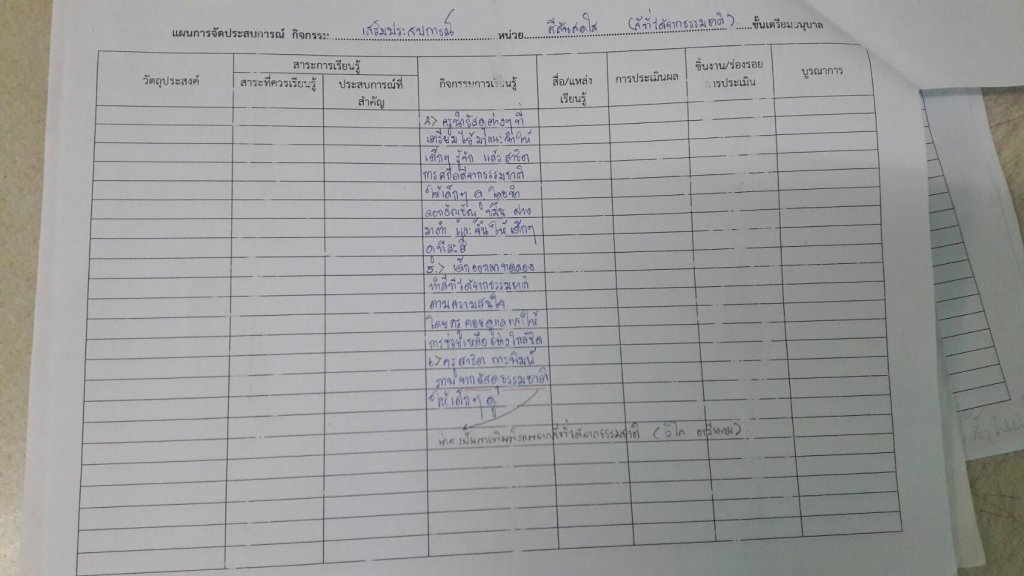 แผนการจัดประสบการณ์ กิจกรรม เสริมประสบการณ์ หน่วย สีสันสดใส (สีที่ได้จากธรรมชาติ) ชั้นเตรียมอนุบาล
วัตถุประสงค์
สาระการเรียนรู้
สาระที่ควรเรียนรู้
ประสบการณ์ที่
สำคัญ
กิจกรรมการเรียนรู้
สื่อ/แหล่ง
เรียนรู้
การประเมินผล
ชิ้นงาน/ร่องรอย
การประเมิน
บูรณาการ
ครูนำวัสดุต่างๆ ที่
เตรียมไว้มาแนะนำให้
เด็กๆ รู้จัก แล้วสาธิต
การสกัดสีจากธรรมชาติ
ให้เด็กๆ ดู โดยนำ
ดอกอัญชัญ ขมิ้น ฝาง
มาตำ และคั้นให้เด็กๆ
ดูทีละสี
5.> เด็กออกมาทดลอง
ทำสีที่ได้จากธรรมชาติ
ตามความสนใจ
โดยครูคอยดูแลและให้
การช่วยเหลืออย่างใกล้ชิด
6.> ครูสาธิต การพิมพ์
ภาพจากวัสดุธรรมชาติ
ให้เด็กๆ ดู
เป็นการพิมพ์ภาพจากสีที่ได้จากธรรมชาติ